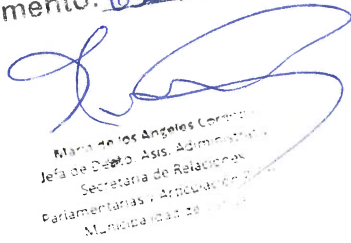 mento:
María de los Angeles
Jefa de Depto. Asis. Administrat
Secretaría de Relaciones
Parlamentarias y Articulación
Municipalidad de